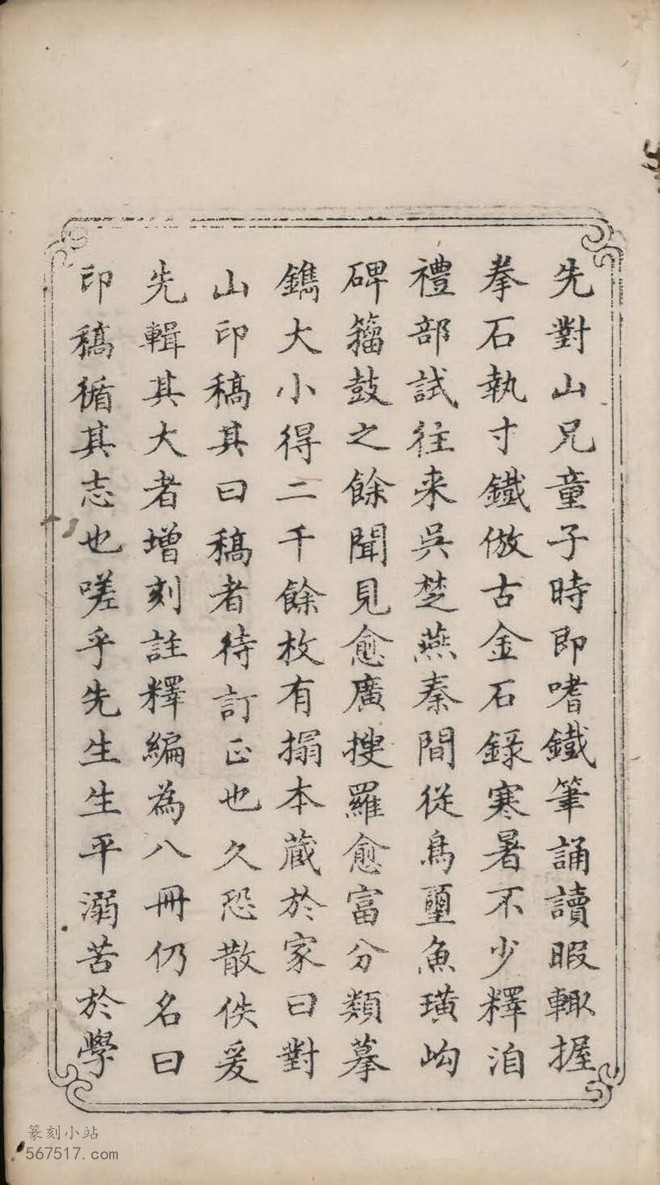 先對山兄童子時即嗜鐵筆誦讀暇輙握
拳石執寸鐵倣古金石錄寒暑不少釋洎
禮部試往来吳楚燕秦間從鳥璽魚璜岣
碑籀鼓之餘聞見愈廣搜羅愈富分類摹
鐫大小得二千餘枚有搨本蔵於家曰對
山印稿其曰稿者待訂正也久恐散佚爰
先輯其大者增刻註釋編為八冊仍名曰
印稿循其志也嗟乎先生生平溺苦於學
篆刻小站
567517.com